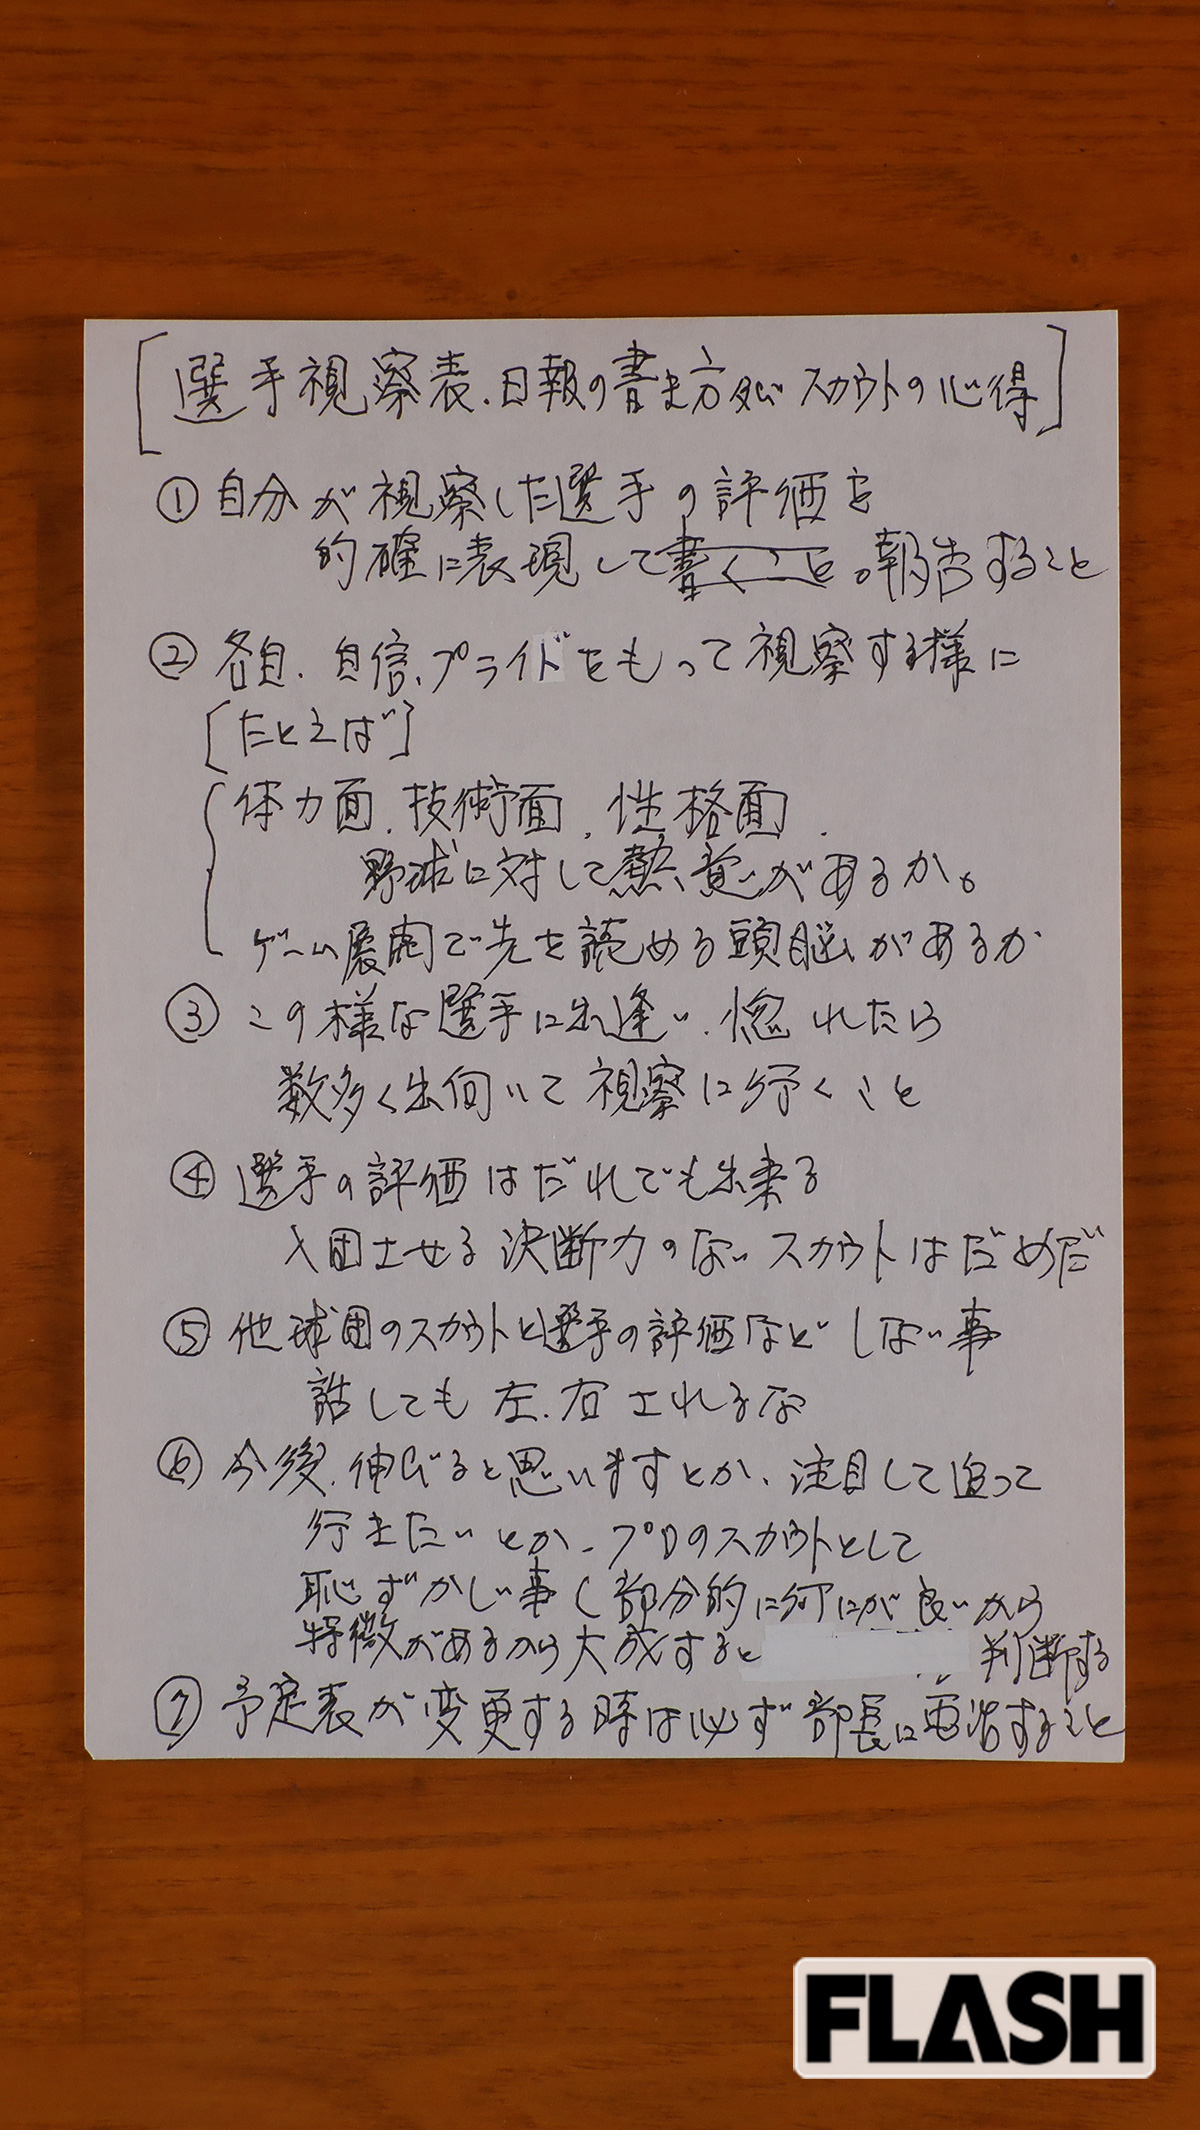 [選手視察表、日報の書き方及びスカウトの心得]
①自分が視察した選手の評価を
的確に表現して書くこと。報告すること
②各自、自信、プライドをもって視察する様に
[たとえば]
体力面、技術面、性格面、
野球に対して熱意があるか。
ゲーム展開で先を読める頭脳があるか
③この様な選手に出逢い、惚れたら
数多く出向いて視察に行くこと
④選手の評価はだれでも出来る
入団させる決断力のないスカウトはだめだ
⑤他球団のスカウトと選手の評価などしない事
話しても左、右されるな
⑥今後、伸びると思いますとか、注目して追って
行きたいとか、プロのスカウトとして
恥ずかしい事(部分的に何にが良いから
特徴があるから大成すると 判断する
⑦予定表が変更する時は必ず部長に電話すること
FLASH